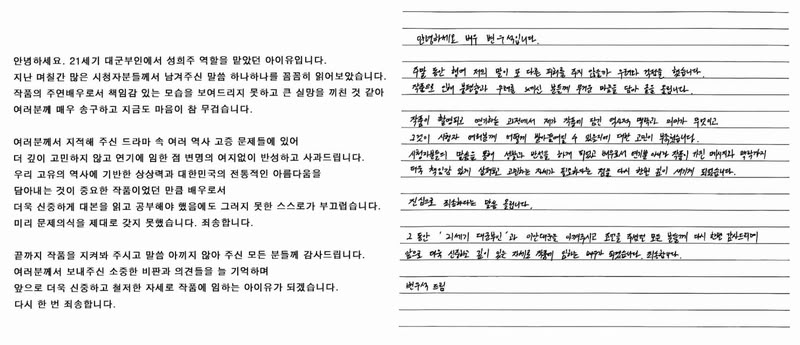 안녕하세요. 21세기 대군부인에서 성희주 역할을 맡았던 아이유입니다.
지난 며칠간 많은 시청자분들께서 남겨주신 말씀 하나하나를 꼼꼼히 읽어보았습니다.
작품의 주연배우로서 책임감 있는 모습을 보여드리지 못하고 큰 실망을 끼친 것 같아
여러분께 매우 송구하고 지금도 마음이 참 무겁습니다.
여러분께서 지적해 주신 드라마 속 여러 역사 고증 문제들에 있어
더 깊이 고민하지 않고 연기에 임한 점 변명의 여지없이 반성하고 사과드립니다.
우리 고유의 역사에 기반한 상상력과 대한민국의 전통적인 아름다움을
담아내는 것이 중요한 작품이었던 만큼 배우로서
더욱 신중하게 대본을 읽고 공부해야 했음에도 그러지 못한 스스로가 부끄럽습니다.
미리 문제의식을 제대로 갖지 못했습니다. 죄송합니다.
끝까지 작품을 지켜봐 주시고 말씀 아끼지 않아 주신 모든 분들께 감사드립니다.
여러분께서 보내주신 소중한 비판과 의견들을 늘 기억하며
앞으로 더욱 신중하고 철저한 자세로 작품에 임하는 아이유가 되겠습니다.
다시 한 번 죄송합니다.
안녕하세요 배우 변우석입니다.
주말 동안 혹여 저의 말이 또 다른 피해를 주지 않을까 우려와 걱정을 했습니다.
작품으로 인해 불편함과 우려를 느끼신 분들께 무거운 마음을 담아 글을 올립니다.
작품이 촬영되고 연기하는 과정에서 제가 작품에 담긴 역사적 맥락과 의미가 무엇이고
그것이 시청자 여러분께 어떻게 받아들여질 수 있을지에 대한 고민이 부족했습니다.
시청자분들의 말씀을 통해 성찰과 반성을 하게 되었고 배우로서 연기뿐 아니라 작품이 가진 메시지와 맥락까지
더욱 책임감 있게 살펴보고 고민하는 자세가 필요하다는 점을 다시 한번 깊이 새기게 되었습니다.
진심으로 죄송하다는 말을 올립니다.
그 동안 '21세기 대군부인'과 이안대군을 아껴주시고 조언을 주셨던 모든 분들께 다시 한번 감사드리며
앞으로 더욱 신중하고 깊이 있는 자세로 작품에 임하는 배우가 되겠습니다. 죄송합니다.
변우석 드림